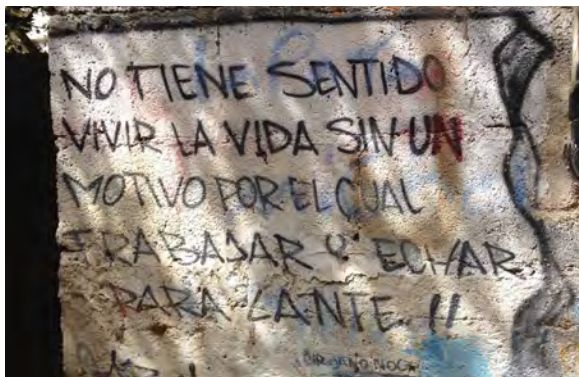 NO TIENE SENTIDO
VIVIR LA VIDA SIN UN
MOTIVO POR EL CUAL
TRABAJAR Y ECHAR
PARA LANTE. !!